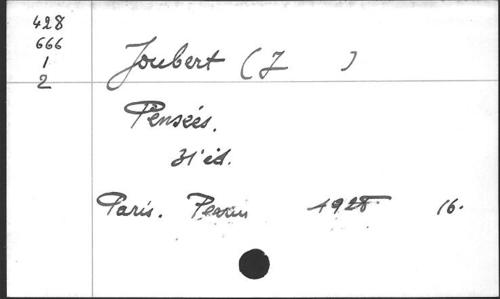 428
666
1
2
Joubert (J )
Pensées.
31ᵉ éd.
Paris. Perrin 1928. 16.